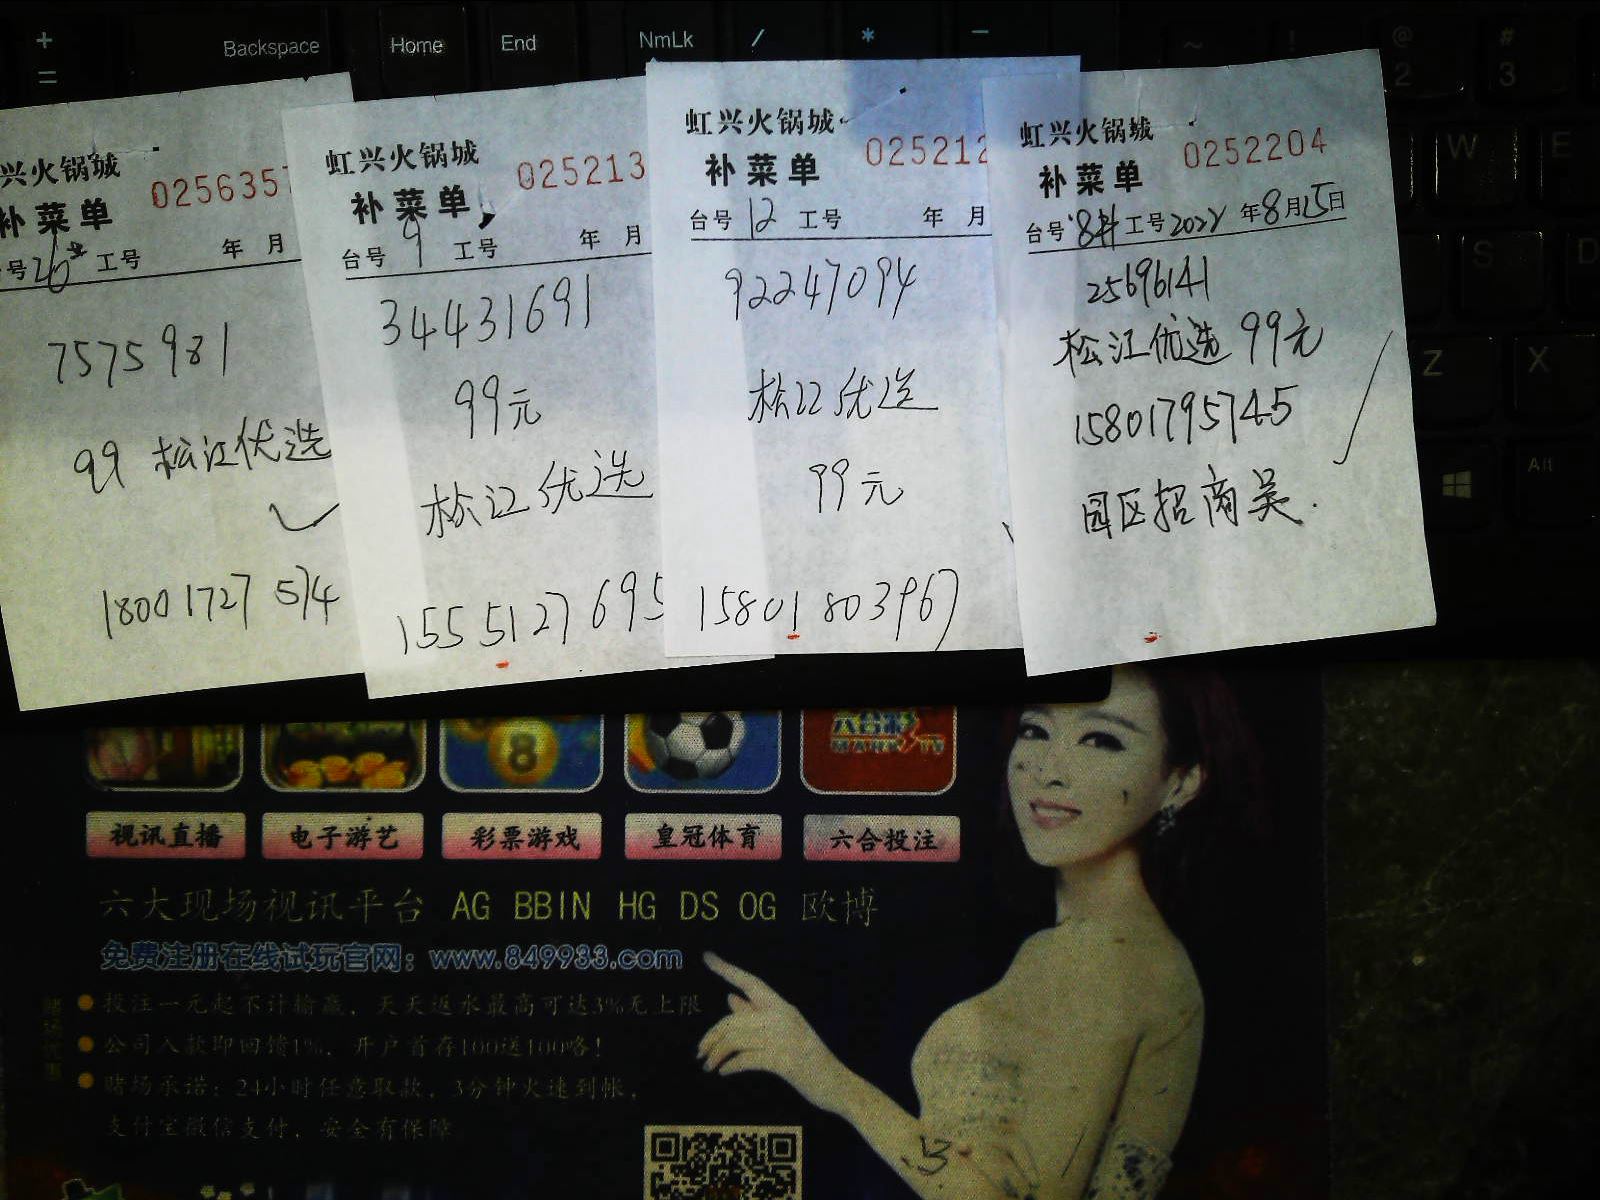 +
=
Backspace
Home
End
NmLk
/
*
-
~
!
@
2
#
3
W
E
S
D
Z
X
Alt
兴火锅城
0256357
补菜单
号 26# 工号 年 月
7575981
99 松江优选
18001727574
虹兴火锅城
025213
补菜单
台号 9 工号 年 月
34431691
99元
松江优选
1555127695
虹兴火锅城
025212
补菜单
台号 12 工号 年 月
92247094
松江优选
99元
15801803967
虹兴火锅城
0252204
补菜单
台号 8# 工号 2022 年 8月15日
25696141
松江优选 99元
15801795745
园区招商吴.
8
六合彩
MARK SIX
视讯直播
电子游艺
彩票游戏
皇冠体育
六合投注
六大现场视讯平台 AG BBIN HG DS OG 欧博
免费注册在线试玩官网：www.849933.com
投注一元起不计输赢，天天返水最高可达3%无上限
公司入款即回馈1%，开户首存100送100咯！
赌场承诺：24小时任意取款，3分钟火速到帐，
支付宝微信支付，安全有保障